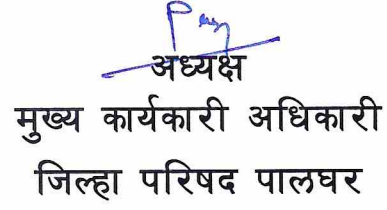 अध्यक्ष
मुख्य कार्यकारी अधिकारी
जिल्हा परिषद पालघर